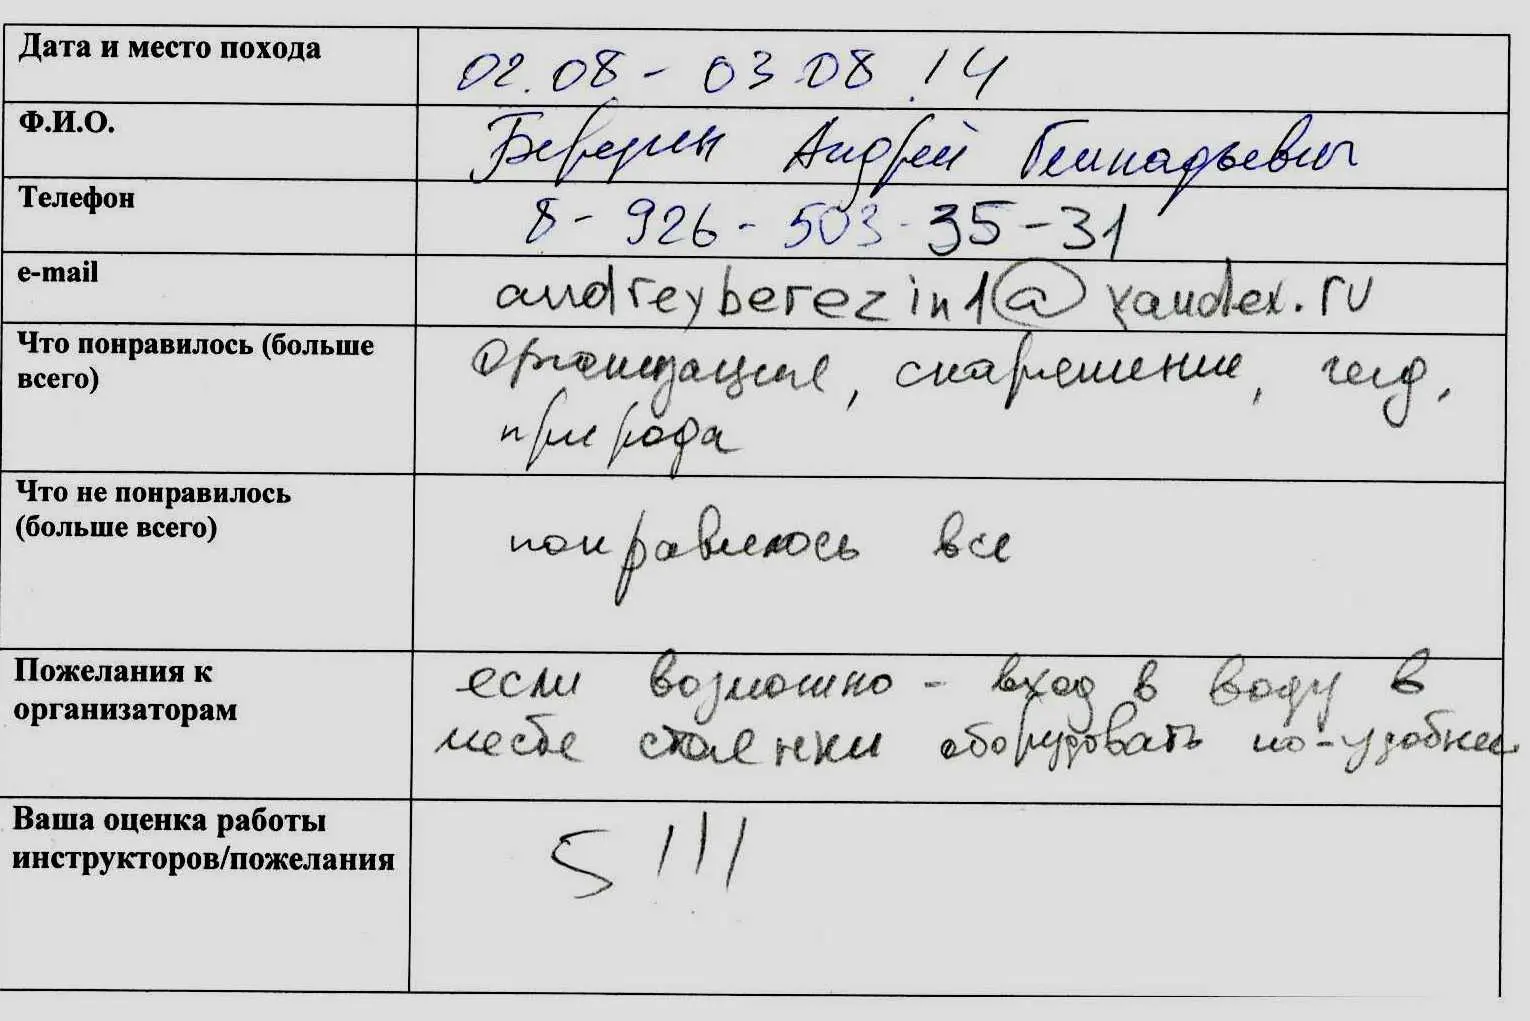 Дата и место похода
02.08 - 03.08.14
Ф.И.О.
Березин Андрей Геннадьевич
Телефон
8-926-503-35-31
e-mail
andreyberezin1@yandex.ru
Что понравилось (больше
всего)
организация, снаряжение, гид,
природа
Что не понравилось
(больше всего)
понравилось все
Пожелания к
организаторам
если возможно - вход в воду в
месте стоянки оборудовать по-удобнее
Ваша оценка работы
инструкторов/пожелания
5 !!!